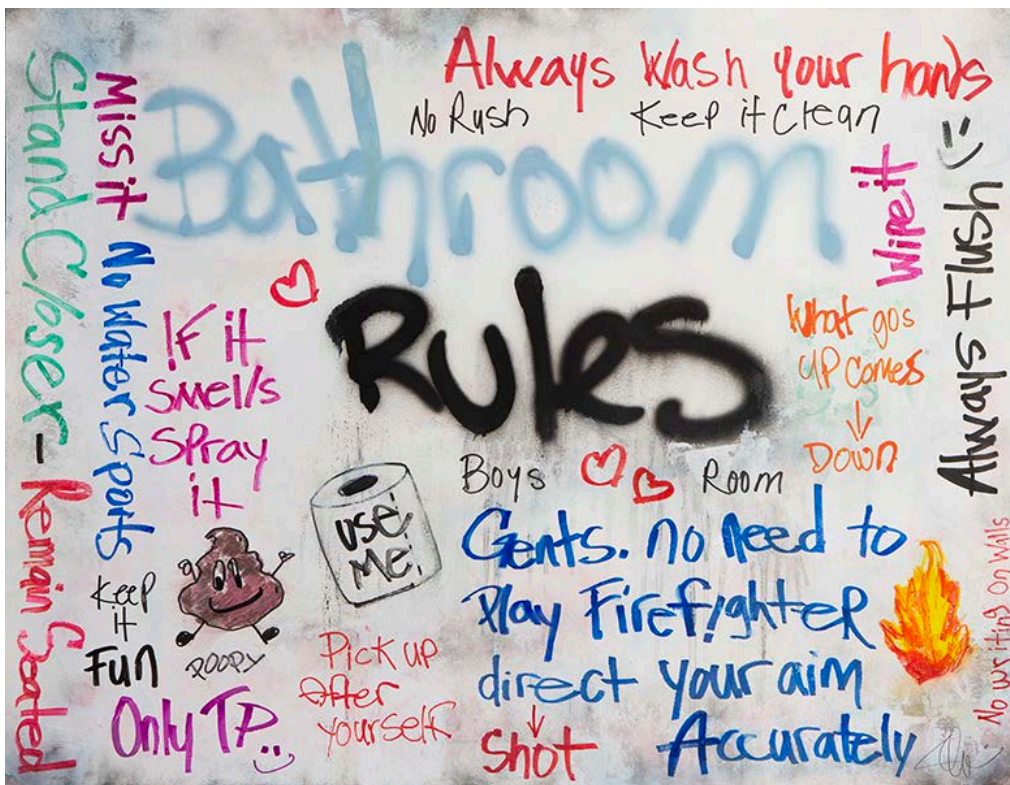 Always Wash your hands
No Rush
Keep it Clean
Bathroom
Rules
Stand Closer - Remain Seated
Miss it
No Water Sports
If it
Smells
Spray
it
Wipe it
Always Flush (:
What gos
UP comes
Down
Boys
Room
use
Me
Gents. no need to
Play Firefighter
direct your aim
Shot
Accurately
Keep
it
Fun
POOPY
Only TP
Pick up
After
yourself
No writing on walls